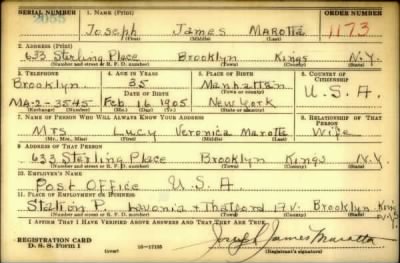 SERIAL NUMBER 1. NAME (Print) ORDER NUMBER
2055 Joseph James Marotta 1173
(First) (Middle) (Last)
2. ADDRESS (Print)
633 Sterling Place Brooklyn Kings N.Y.
(Number and street or R. F. D. number) (Town) (County) (State)
3. TELEPHONE 4. AGE IN YEARS 5. PLACE OF BIRTH 6. COUNTRY OF CITIZENSHIP
Brooklyn 35 Manhattan
DATE OF BIRTH (Town or county) U.S.A.
MA-2-3545 Feb. 16 1905 New York
(Exchange) (Number) (Mo.) (Day) (Yr.) (State or country)
7. NAME OF PERSON WHO WILL ALWAYS KNOW YOUR ADDRESS 8. RELATIONSHIP OF THAT PERSON
Mrs Lucy Veronica Marotta Wife
(Mr., Mrs., Miss) (First) (Middle) (Last)
9. ADDRESS OF THAT PERSON
633 Sterling Place Brooklyn Kings N.Y.
(Number and street or R. F. D. number) (Town) (County) (State)
10. EMPLOYER'S NAME
Post Office U.S.A
11. PLACE OF EMPLOYMENT OR BUSINESS
Station P. Lavonia + Thatford Av. Brooklyn Kings N.Y.
(Number and street or R. F. D. number) (Town) (County) (State)
I AFFIRM THAT I HAVE VERIFIED ABOVE ANSWERS AND THAT THEY ARE TRUE.
REGISTRATION CARD
D. S. S. FORM 1 (over) 16-17105 Joseph James Marotta
(Registrant's signature)